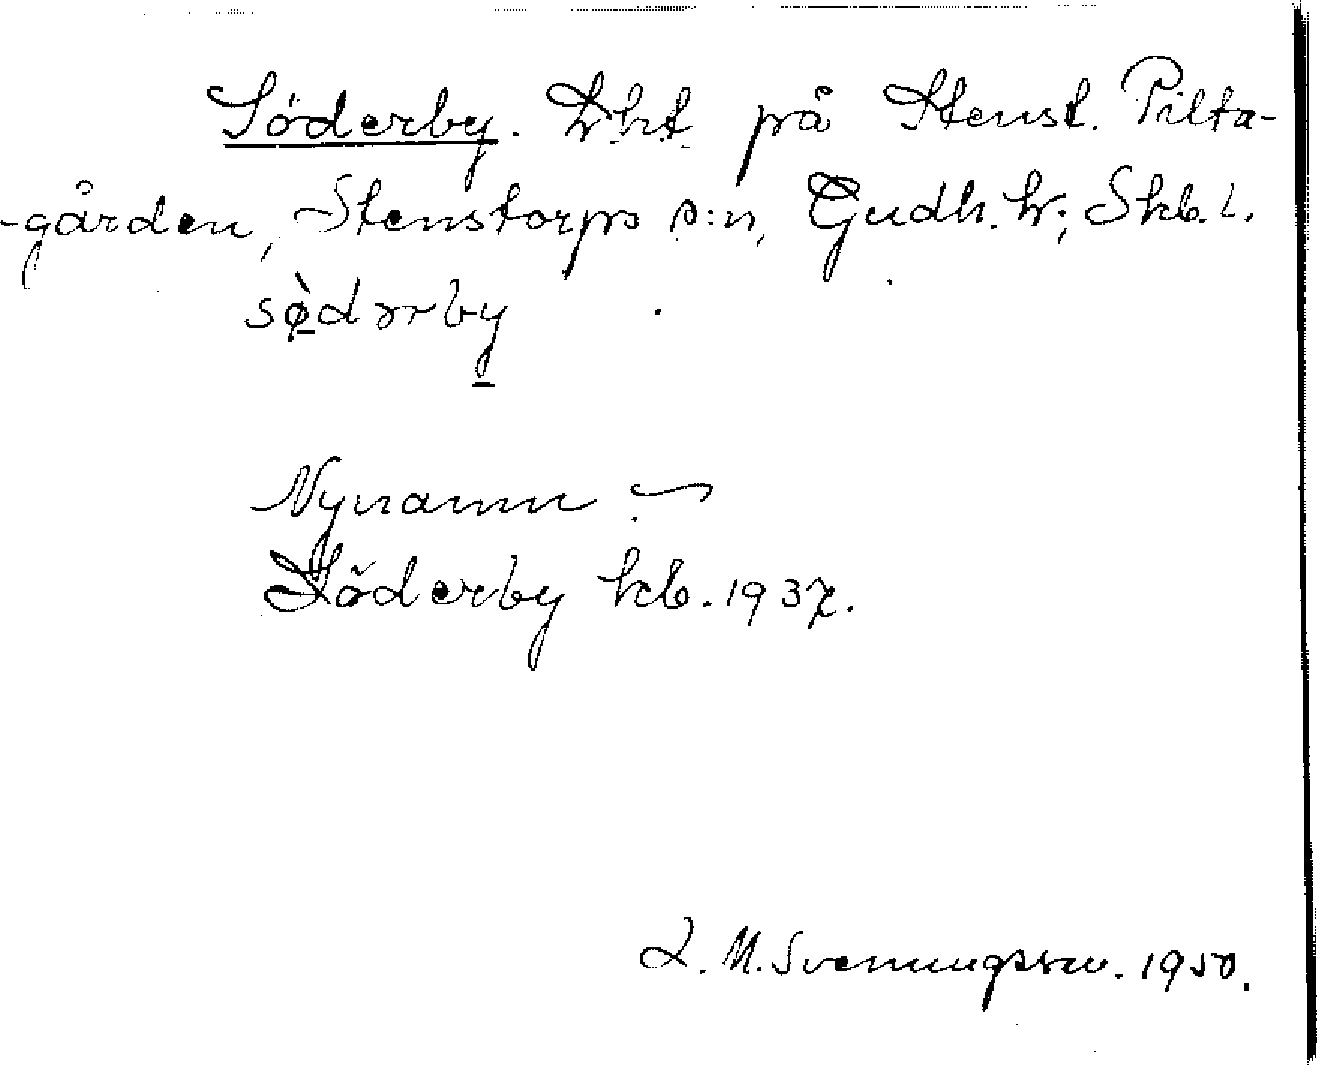 Söderby. Lht på Stenst. Pilta-
-gården, Stenstorps s:n, Gudh. h; Skb. l.
sødərby
Nynamn
Söderby kb. 1937.
L. M. Svenungsson. 1950.